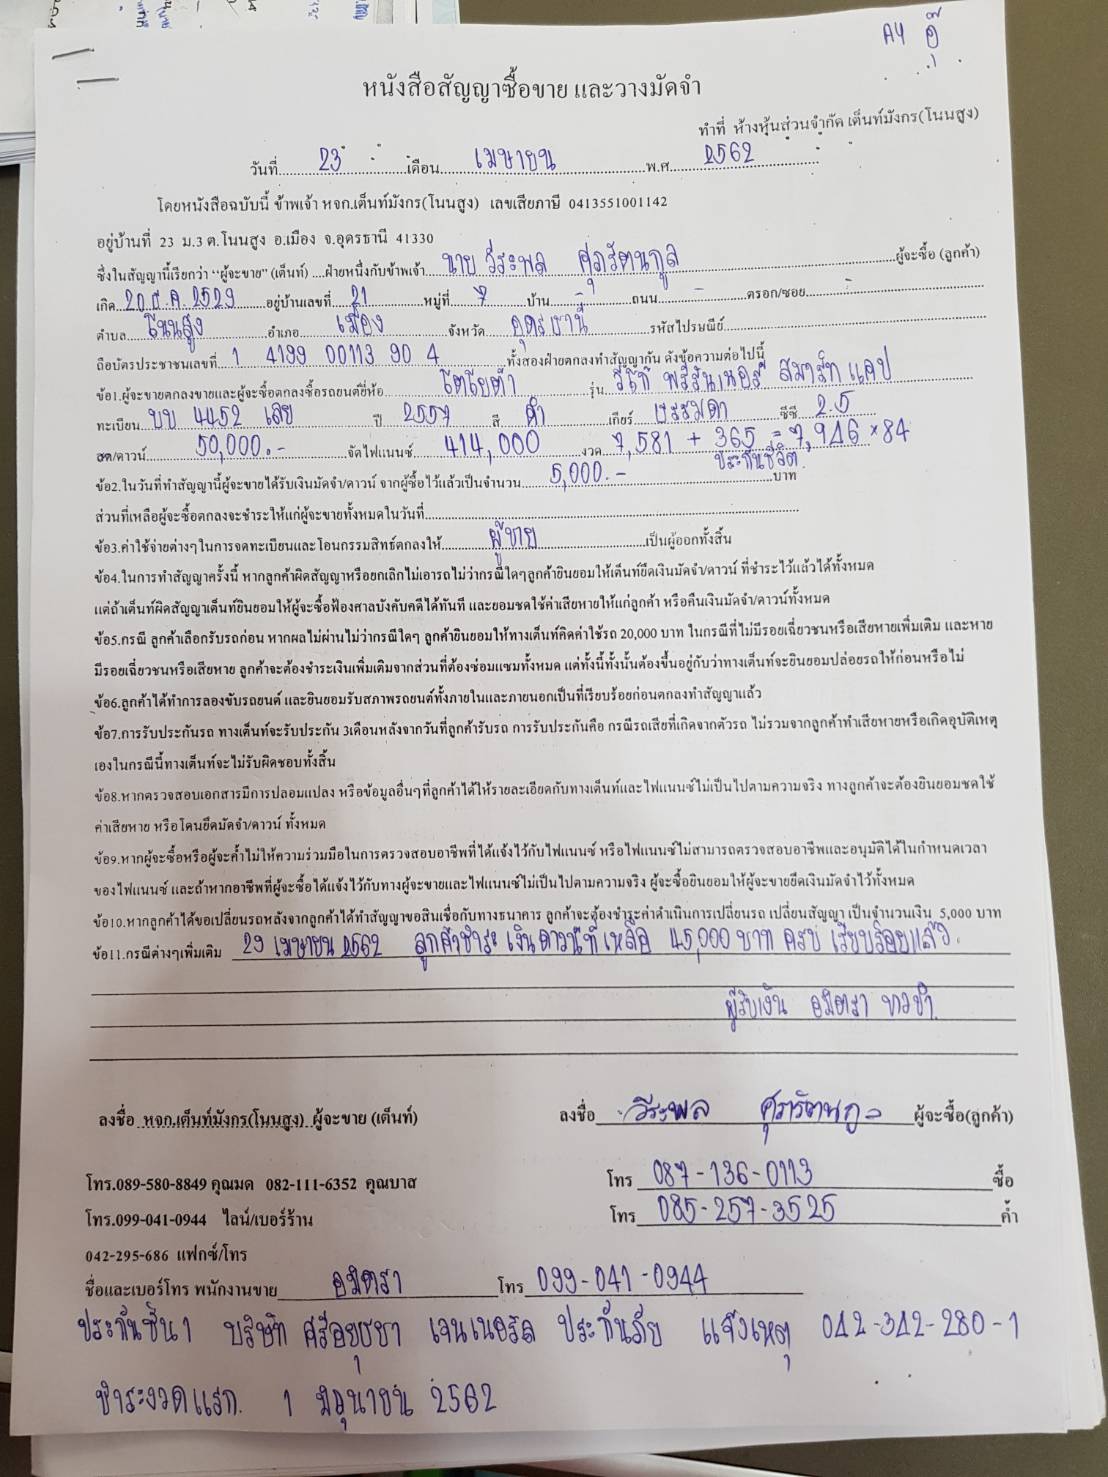 A4 อุ๊
หนังสือสัญญาซื้อขาย และวางมัดจำ
ทำที่ ห้างหุ้นส่วนจำกัด เต็นท์มังกร(โนนสูง)
วันที่ 23 เดือน เมษายน พ.ศ. 2562
โดยหนังสือฉบับนี้ ข้าพเจ้า หจก.เต็นท์มังกร(โนนสูง) เลขเสียภาษี 0413551001142
อยู่บ้านที่ 23 ม.3 ต.โนนสูง อ.เมือง จ.อุดรธานี 41330
ซึ่งในสัญญานี้เรียกว่า "ผู้จะขาย" (เต็นท์) ....ฝ่ายหนึ่งกับข้าพเจ้า นาย วีระพล ศุภรัตนกูล ผู้จะซื้อ (ลูกค้า)
เกิด 20 ธ.ค. 2529 อยู่บ้านเลขที่ 21 หมู่ที่ 7 บ้าน - ถนน - ตรอก/ซอย
ตำบล โนนสูง อำเภอ เมือง จังหวัด อุดรธานี รหัสไปรษณีย์
ถือบัตรประชาชนเลขที่ 1 4199 00113 90 4 ทั้งสองฝ่ายตกลงทำสัญญากัน ดังข้อความต่อไปนี้
ข้อ1.ผู้จะขายตกลงขายและผู้จะซื้อตกลงซื้อรถยนต์ยี่ห้อ โตโยต้า รุ่น วีโก้ พรีรันเนอร์ สมาร์ท แคป
ทะเบียน บบ 4452 เลย ปี 2557 สี ดำ เกียร์ ธรรมดา ซีซี 2.5
สด/ดาวน์ 50,000.- จัดไฟแนนซ์ 414,000 งวด 7,581 + 365 = 7,946 × 84
ประกันชีวิต
ข้อ2.ในวันที่ทำสัญญานี้ผู้จะขายได้รับเงินมัดจำ/ดาวน์ จากผู้ซื้อไว้แล้วเป็นจำนวน 5,000.- บาท
ส่วนที่เหลือผู้จะซื้อตกลงจะชำระให้แก่ผู้จะขายทั้งหมดในวันที่
ข้อ3.ค่าใช้จ่ายต่างๆในการจดทะเบียนและโอนกรรมสิทธ์ตกลงให้ ผู้ขาย เป็นผู้ออกทั้งสิ้น
ข้อ4.ในการทำสัญญาครั้งนี้ หากลูกค้าผิดสัญญาหรือยกเลิกไม่เอารถไม่ว่ากรณีใดๆลูกค้ายินยอมให้เต็นท์ยึดเงินมัดจำ/ดาวน์ ที่ชำระไว้แล้วได้ทั้งหมด
แต่ถ้าเต็นท์ผิดสัญญาเต็นท์ยินยอมให้ผู้จะซื้อฟ้องศาลบังคับคดีได้ทันที และยอมชดใช้ค่าเสียหายให้แก่ลูกค้า หรือคืนเงินมัดจำ/ดาวน์ทั้งหมด
ข้อ5.กรณี ลูกค้าเลือกรับรถก่อน หากผลไม่ผ่านไม่ว่ากรณีใดๆ ลูกค้ายินยอมให้ทางเต็นท์คิดค่าใช้รถ 20,000 บาท ในกรณีที่ไม่มีรอยเฉี่ยวชนหรือเสียหายเพิ่มเติม และหาย
มีรอยเฉี่ยวชนหรือเสียหาย ลูกค้าจะต้องชำระเงินเพิ่มเติมจากส่วนที่ต้องซ่อมแซมทั้งหมด แต่ทั้งนี้ทั้งนั้นต้องขึ้นอยู่กับว่าทางเต็นท์จะยินยอมปล่อยรถให้ก่อนหรือไม่
ข้อ6.ลูกค้าได้ทำการลองขับรถยนต์ และยินยอมรับสภาพรถยนต์ทั้งภายในและภายนอกเป็นที่เรียบร้อยก่อนตกลงทำสัญญาแล้ว
ข้อ7.การรับประกันรถ ทางเต็นท์จะรับประกัน 3เดือนหลังจากวันที่ลูกค้ารับรถ การรับประกันคือ กรณีรถเสียที่เกิดจากตัวรถ ไม่รวมจากลูกค้าทำเสียหายหรือเกิดอุบัติเหตุ
เองในกรณีนี้ทางเต็นท์จะไม่รับผิดชอบทั้งสิ้น
ข้อ8.หากตรวจสอบเอกสารมีการปลอมแปลง หรือข้อมูลอื่นๆที่ลูกค้าได้ให้รายละเอียดกับทางเต็นท์และไฟแนนซ์ไม่เป็นไปตามความจริง ทางลูกค้าจะต้องยินยอมชดใช้
ค่าเสียหาย หรือโดนยึดมัดจำ/ดาวน์ ทั้งหมด
ข้อ9.หากผู้จะซื้อหรือผู้จะค้ำไม่ให้ความร่วมมือในการตรวจสอบอาชีพที่ได้แจ้งไว้กับไฟแนนซ์ หรือไฟแนนซ์ไม่สามารถตรวจสอบอาชีพและอนุมัติได้ในกำหนดเวลา
ของไฟแนนซ์ และถ้าหากอาชีพที่ผู้จะซื้อได้แจ้งไว้กับทางผู้จะขายและไฟแนนซ์ไม่เป็นไปตามความจริง ผู้จะซื้อยินยอมให้ผู้จะขายยึดเงินมัดจำไว้ทั้งหมด
ข้อ10.หากลูกค้าได้ขอเปลี่ยนรถหลังจากลูกค้าได้ทำสัญญาขอสินเชื่อกับทางธนาคาร ลูกค้าจะต้องชำระค่าดำเนินการเปลี่ยนรถ เปลี่ยนสัญญา เป็นจำนวนเงิน 5,000 บาท
ข้อ11.กรณีต่างๆเพิ่มเติม 29 เมษายน 2562 ลูกค้าชำระ เงินดาวน์ที่เหลือ 45,000 บาท ครบ เรียบร้อยแล้ว.
ผู้รับเงิน อมิตรา
ลงชื่อ หจก.เต็นท์มังกร(โนนสูง) ผู้จะขาย (เต็นท์) ลงชื่อ วีระพล ศุภรัตนกูล ผู้จะซื้อ(ลูกค้า)
โทร.089-580-8849 คุณมด 082-111-6352 คุณบาส โทร 087-136-0113 ซื้อ
โทร.099-041-0944 ไลน์/เบอร์ร้าน โทร 085-257-3525 ค้ำ
042-295-686 แฟกซ์/โทร
ชื่อและเบอร์โทร พนักงานขาย อมิตรา โทร 099-041-0944
ประกันชั้น1 บริษัท ศรีอยุธยา เจนเนอรัล ประกันภัย แจ้งเหตุ 042-342-280-1
ชำระงวดแรก. 1 มิถุนายน 2562